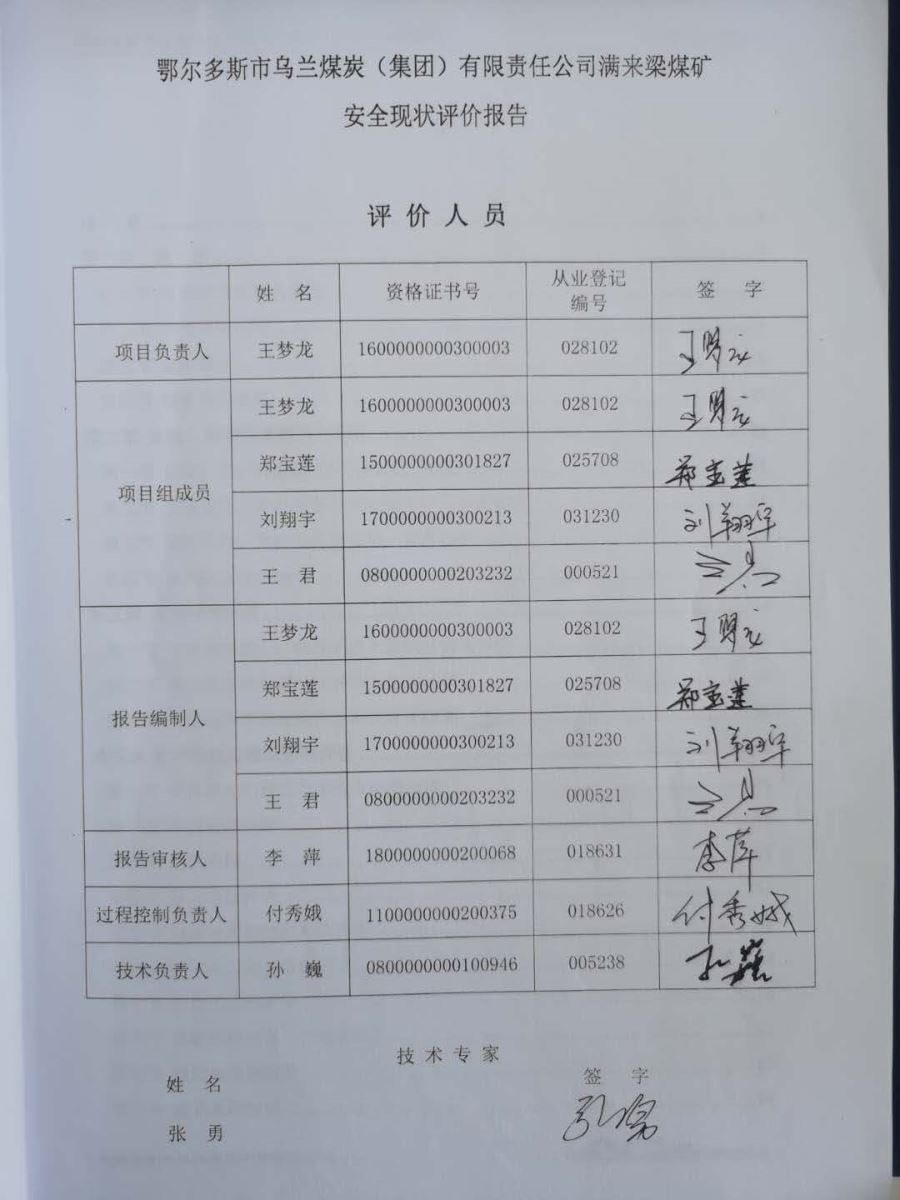 鄂尔多斯市乌兰煤炭（集团）有限责任公司满来梁煤矿
安全现状评价报告
评价人员
姓 名 资格证书号 从业登记编号 签 字
项目负责人 王梦龙 1600000000300003 028102 王梦龙
项目组成员 王梦龙 1600000000300003 028102 王梦龙
郑宝莲 1500000000301827 025708 郑宝莲
刘翔宇 1700000000300213 031230 刘翔宇
王 君 0800000000203232 000521 王君
报告编制人 王梦龙 1600000000300003 028102 王梦龙
郑宝莲 1500000000301827 025708 郑宝莲
刘翔宇 1700000000300213 031230 刘翔宇
王 君 0800000000203232 000521 王君
报告审核人 李 萍 1800000000200068 018631 李萍
过程控制负责人 付秀娥 1100000000200375 018626 付秀娥
技术负责人 孙 巍 0800000000100946 005238 孙巍
技术专家
姓 名 签 字
张 勇 张勇